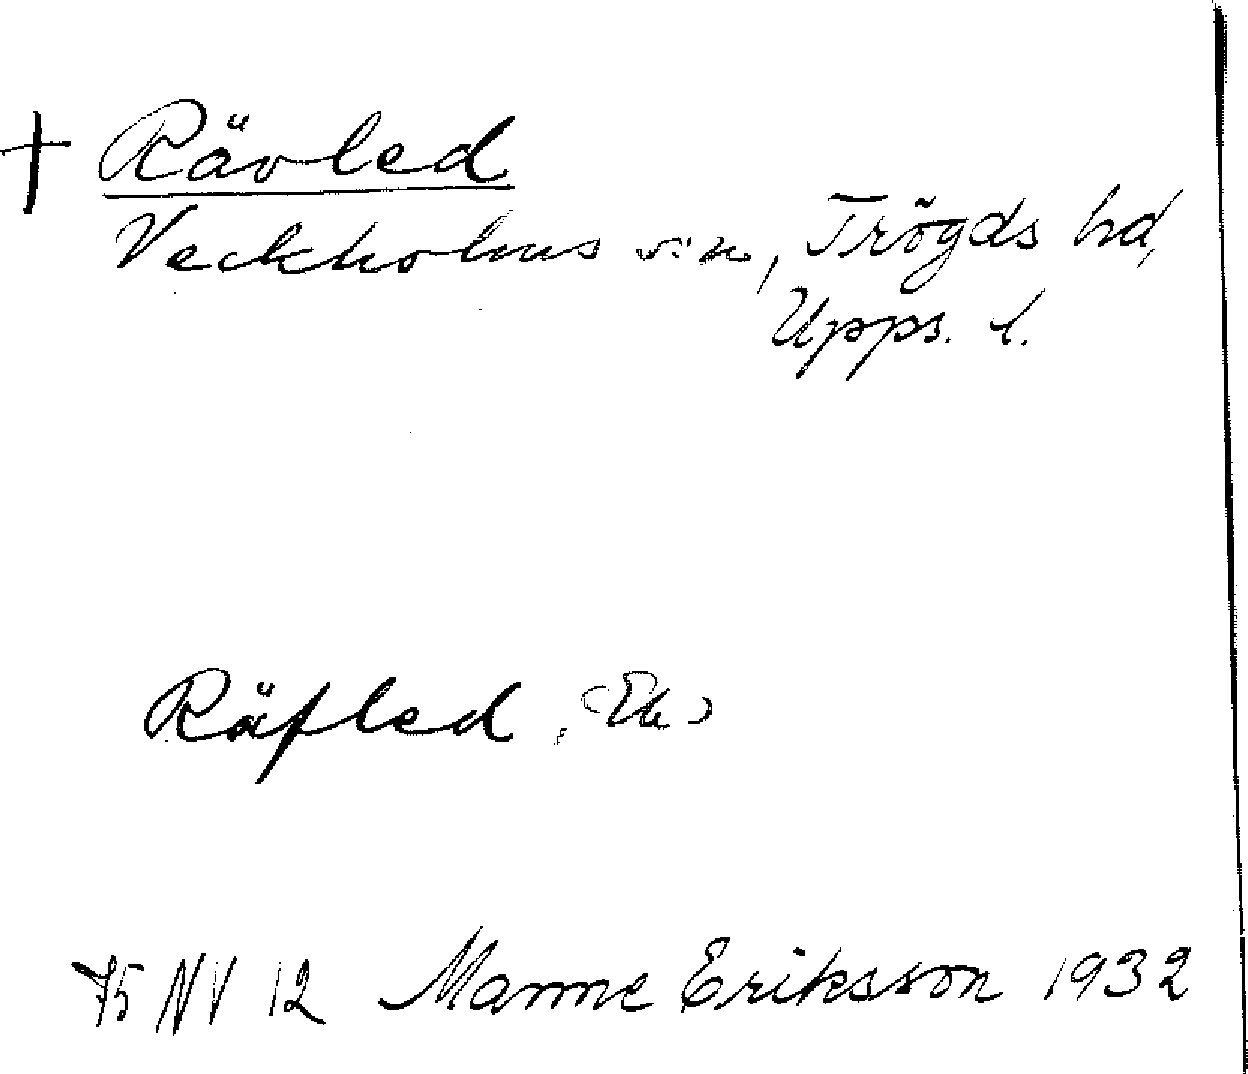 + Rävled
Veckholms sn, Trögds hd,
Upps. l.
Räfled (Ek)
75 NV 12 Manne Eriksson 1932